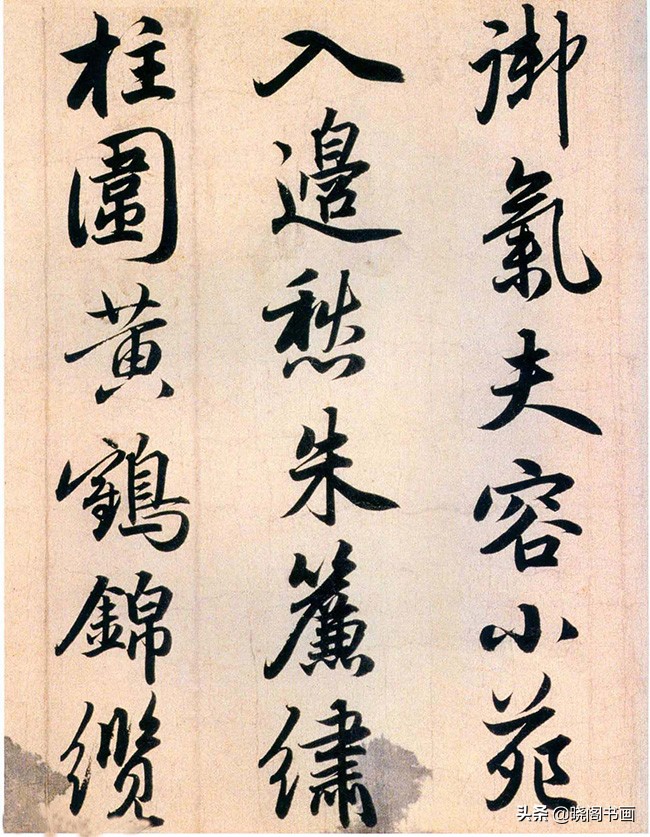 御氣夫容小苑
入邊愁朱簾繡
柱圍黄鶴錦纜
头条 @晓阁书画